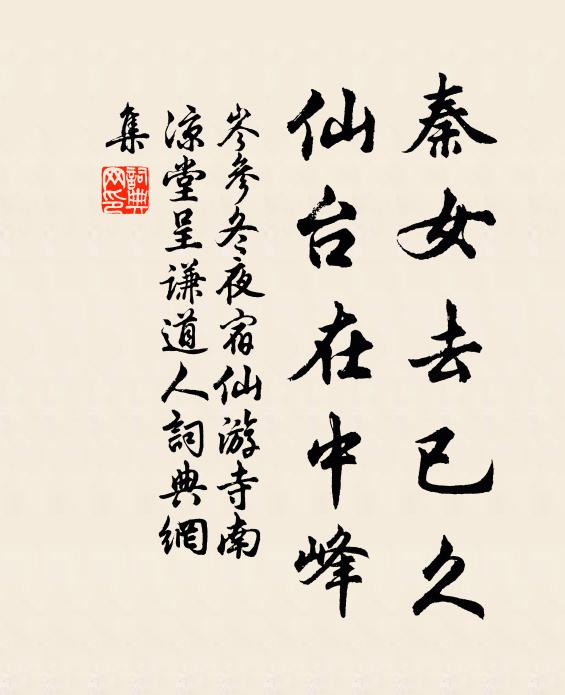 秦女去已久
仙台在中峰
岑参冬夜宿仙游寺南
凉堂呈谦道人詞典網
集
詞典
网印